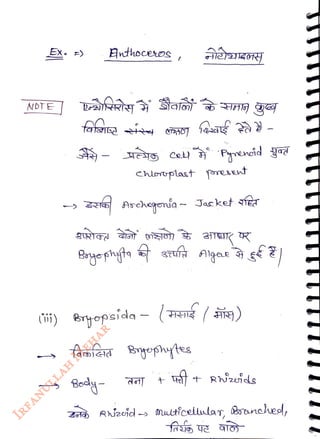 Ex. => Anthoceros, नोटोथाइलस
NOTE ] एन्थोसिरोस में शैवालों के समान कुछ
विशिष्ट लक्षण दिखाई देते है -
जैसे - प्रत्येक cell में Pyrenoid युक्त
chloroplast present
→ इसकी Archegonia - Jacket रहित
उपरोक्त दोनों लक्षणों के आधार पर
Bryophyta की उत्पत्ति Algae से हुई है /
(iii) Bryopsida - ( मसाई / मॉस)
→ विकसित Bryophytes
→ Body - तना + पत्ती + Rhizoids
इनके Rhizoid → Multicellular, Branched,
तिर्यक पट वाले
IRFANULLAH MAZHAR